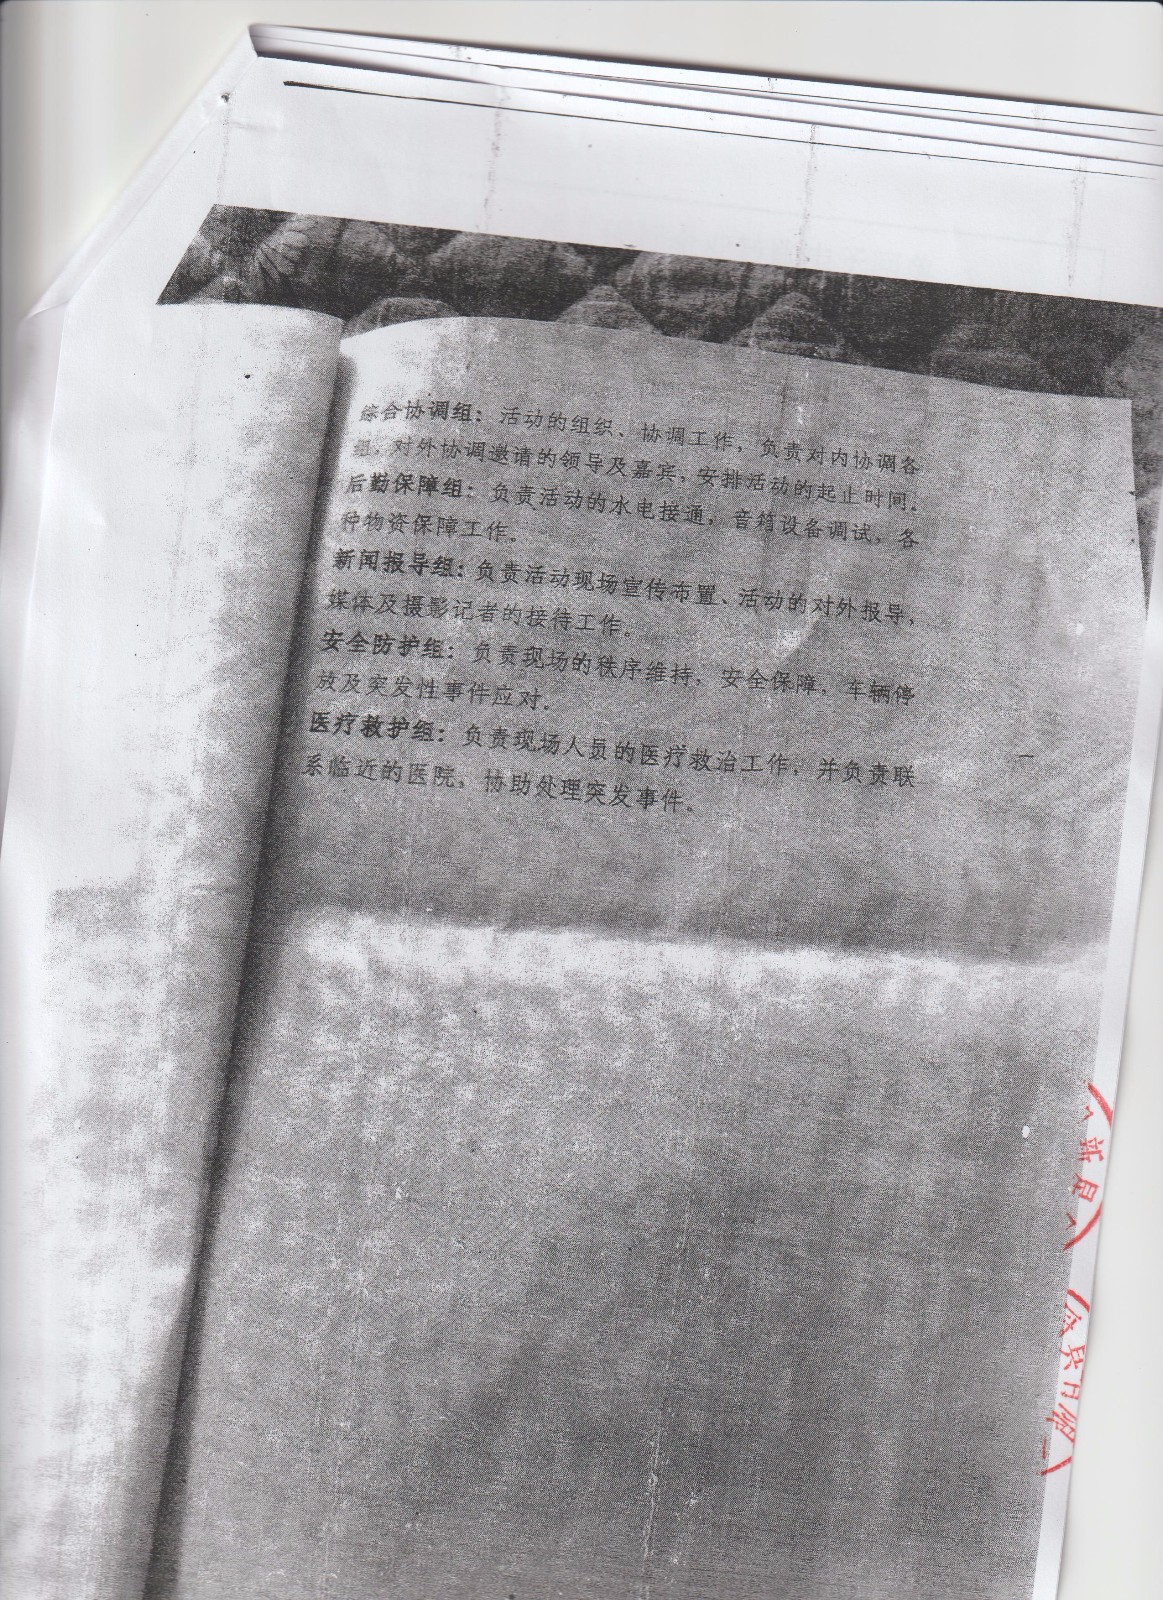 综合协调组：活动的组织、协调工作，负责对内协调各
组，对外协调邀请的领导及嘉宾，安排活动的起止时间。
后勤保障组：负责活动的水电接通，音箱设备调试，各
种物资保障工作。
新闻报导组：负责活动现场宣传布置、活动的对外报导，
媒体及摄影记者的接待工作。
安全防护组：负责现场的秩序维持，安全保障，车辆停
放及突发性事件应对。
医疗救护组：负责现场人员的医疗救治工作，并负责联
系临近的医院，协助处理突发事件。
新县